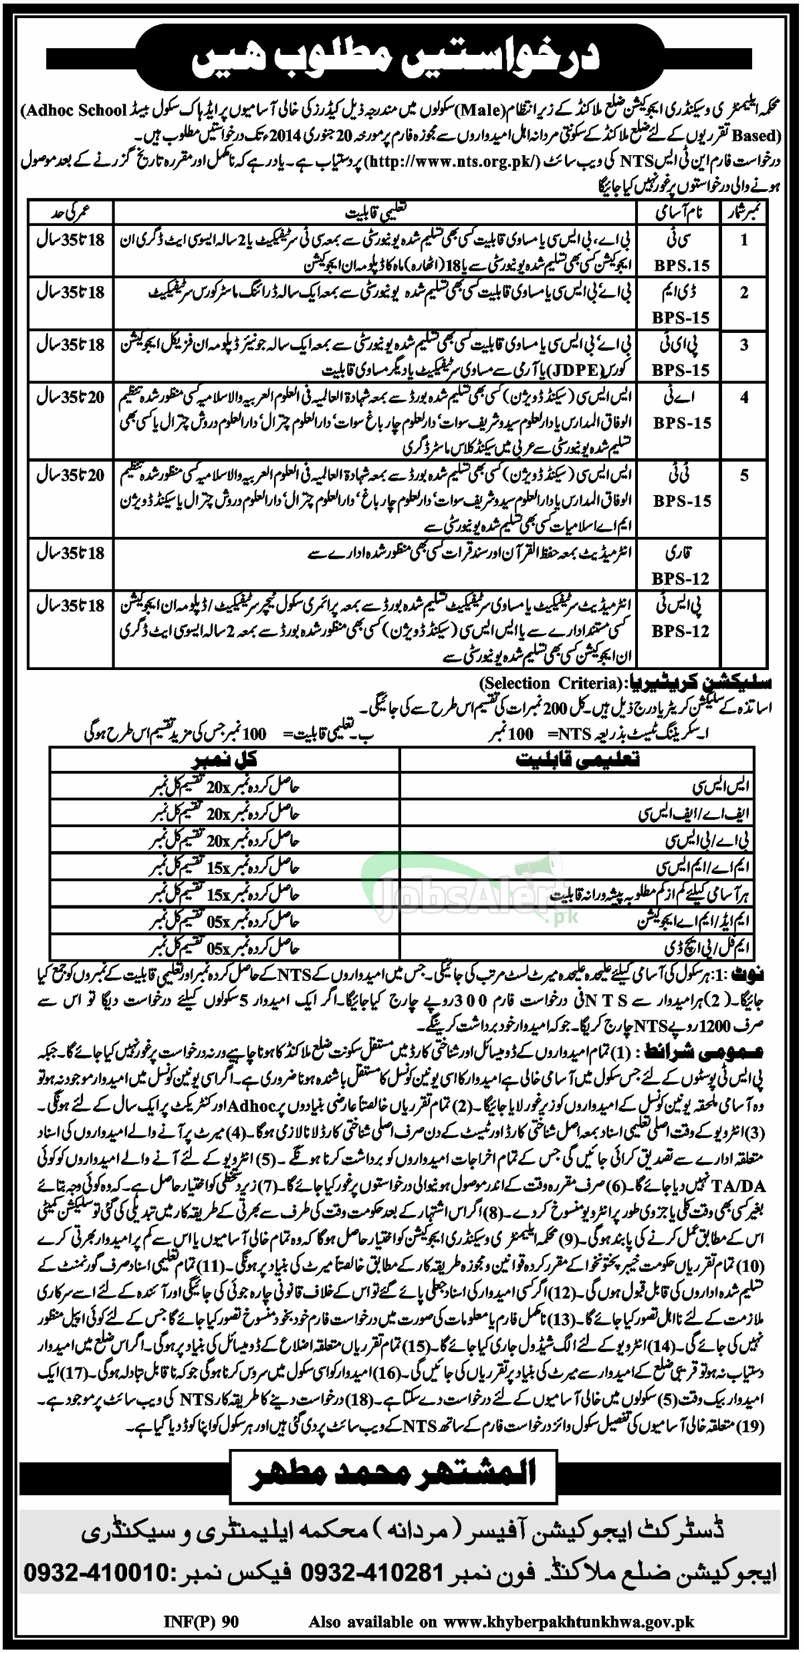 درخواستیں مطلوب ہیں
محکمہ ایلیمنٹری و سیکنڈری ایجوکیشن ضلع ملاکنڈ کے زیر انتظام (Male) سکولوں میں مندرجہ ذیل کیڈرز کی خالی آسامیوں پر ایڈہاک سکول بیسڈ (Adhoc School
Based) تقرریوں کے لئے ضلع ملاکنڈ کے سکونتی مردانہ اہل امیدواروں سے مجوزہ فارم پر مورخہ 20 جنوری 2014ء تک درخواستیں مطلوب ہیں۔
درخواست فارم این ٹی ایس NTS کی ویب سائٹ (http://www.nts.org.pk/) پر دستیاب ہے۔ یاد رہے کہ نامکمل اور مقررہ تاریخ گزرنے کے بعد موصول
ہونے والی درخواستوں پر غور نہیں کیا جائیگا
نمبر شمار نام آسامی تعلیمی قابلیت عمر کی حد
1 سی ٹی BPS.15 بی اے، بی ایس سی یا مساوی قابلیت کسی بھی تسلیم شدہ یونیورسٹی سے بمعہ سی ٹی سرٹیفکیٹ یا 2 سالہ ایسوسی ایٹ ڈگری ان 18 تا 35 سال
ایجوکیشن کسی بھی تسلیم شدہ یونیورسٹی سے یا 18 (اٹھارہ) ماہ کا ڈپلومہ ان ایجوکیشن
2 ڈی ایم BPS-15 بی اے/بی ایس سی یا مساوی قابلیت کسی بھی تسلیم شدہ یونیورسٹی سے بمعہ ایک سالہ ڈرائنگ ماسٹر کورس سرٹیفکیٹ 18 تا 35 سال
3 پی ای ٹی BPS-15 بی اے/بی ایس سی یا مساوی قابلیت کسی بھی تسلیم شدہ یونیورسٹی سے بمعہ ایک سالہ جونیئر ڈپلومہ ان فزیکل ایجوکیشن 18 تا 35 سال
کورس (JDPE) یا آرمی سے مساوی سرٹیفکیٹ یا دیگر مساوی قابلیت
4 اے ٹی BPS-15 ایس ایس سی (سیکنڈ ڈویژن) کسی بھی تسلیم شدہ بورڈ سے بمعہ شہادۃ العالمیہ فی العلوم العربیہ والاسلامیہ کسی منظور شدہ تنظیم 20 تا 35 سال
الوفاق المدارس یا دارالعلوم سیدو شریف سوات، دارالعلوم چارباغ سوات، دارالعلوم چترال، دارالعلوم دروش چترال یا کسی بھی
تسلیم شدہ یونیورسٹی سے عربی میں سیکنڈ کلاس ماسٹر ڈگری
5 ٹی ٹی BPS-15 ایس ایس سی (سیکنڈ ڈویژن) کسی بھی تسلیم شدہ بورڈ سے بمعہ شہادۃ العالمیہ فی العلوم العربیہ والاسلامیہ کسی منظور شدہ تنظیم 20 تا 35 سال
الوفاق المدارس یا دارالعلوم سیدو شریف سوات، دارالعلوم چارباغ، دارالعلوم چترال، دارالعلوم دروش چترال یا سیکنڈ ڈویژن
ایم اے اسلامیات کسی بھی تسلیم شدہ یونیورسٹی سے
قاری BPS-12 انٹرمیڈیٹ بمعہ حفظ القرآن اور سند قرات کسی بھی منظور شدہ ادارے سے 18 تا 35 سال
پی ایس ٹی BPS-12 انٹرمیڈیٹ سرٹیفکیٹ یا مساوی سرٹیفکیٹ تسلیم شدہ بورڈ سے بمعہ پرائمری سکول ٹیچر سرٹیفکیٹ/ڈپلومہ ان ایجوکیشن 18 تا 35 سال
کسی مستند ادارے سے یا ایس ایس سی (سیکنڈ ڈویژن) کسی بھی منظور شدہ بورڈ سے بمعہ 2 سالہ ایسوسی ایٹ ڈگری
ان ایجوکیشن کسی بھی تسلیم شدہ یونیورسٹی سے
سلیکشن کریٹیریا: (Selection Criteria)
اساتذہ کے سلیکشن کریٹریا درج ذیل ہیں۔ کل 200 نمبرات کی تقسیم اس طرح سے کی جائیگی۔
ا۔ سکریننگ ٹیسٹ بذریعہ NTS = 100 نمبر ب۔ تعلیمی قابلیت = 100 نمبر جس کی مزید تقسیم اس طرح ہوگی
تعلیمی قابلیت کل نمبر
ایس ایس سی حاصل کردہ نمبر 20x تقسیم کل نمبر
ایف اے/ایف ایس سی حاصل کردہ نمبر 20x تقسیم کل نمبر
بی اے/بی ایس سی حاصل کردہ نمبر 20x تقسیم کل نمبر
ایم اے/ایم ایس سی حاصل کردہ نمبر 15x تقسیم کل نمبر
ہر آسامی کیلئے کم از کم مطلوبہ پیشہ ورانہ قابلیت حاصل کردہ نمبر 15x تقسیم کل نمبر
ایم ایڈ/ایم اے ایجوکیشن حاصل کردہ نمبر 05x تقسیم کل نمبر
ایم فل/پی ایچ ڈی حاصل کردہ نمبر 05x تقسیم کل نمبر
JobsAlert.pk
نوٹ: 1: ہر سکول کی آسامی کیلئے علیحدہ علیحدہ میرٹ لسٹ مرتب کی جائیگی۔ جس میں امیدواروں کے NTS کے حاصل کردہ نمبر اور تعلیمی قابلیت کے نمبروں کو جمع کیا
جائیگا۔ (2) ہر امیدوار سے NTS فی درخواست فارم 300 روپے چارج کیا جائیگا۔ اگر ایک امیدوار 5 سکولوں کیلئے درخواست دیگا تو اس سے
صرف 1200 روپے NTS چارج کریگا۔ جو کہ امیدوار خود برداشت کرینگے۔
عمومی شرائط: (1) تمام امیدواروں کے ڈومیسائل اور شناختی کارڈ میں مستقل سکونت ضلع ملاکنڈ کا ہونا چاہیے ورنہ درخواست پر غور نہیں کیا جائے گا۔ جبکہ
پی ایس ٹی پوسٹوں کے لئے جس سکول میں آسامی خالی ہے امیدوار کا اسی یونین کونسل کا مستقل باشندہ ہونا ضروری ہے۔ اگر اسی یونین کونسل میں امیدوار موجود نہ ہو تو
وہ آسامی ملحقہ یونین کونسل کے امیدواروں کو زیر غور لایا جائیگا۔ (2) تمام تقرریاں خالصتاً عارضی بنیادوں پر Adhoc اور کنٹریکٹ پر ایک سال کے لئے ہونگی۔
(3) انٹرویو کے وقت اصلی تعلیمی اسناد بمعہ اصل شناختی کارڈ اور ٹیسٹ کے دن صرف اصلی شناختی کارڈ لانا لازمی ہوگا۔ (4) میرٹ پر آنے والے امیدواروں کی اسناد
متعلقہ ادارے سے تصدیق کرائی جائیں گی جس کے تمام اخراجات امیدواروں کو برداشت کرنا ہونگے۔ (5) انٹرویو کے لئے آنے والے امیدواروں کو کوئی
TA/DA نہیں دیا جائے گا۔ (6) صرف مقررہ وقت کے اندر موصول ہونیوالی درخواستوں پر غور کیا جائے گا۔ (7) زیر دستخطی کو اختیار حاصل ہے کہ وہ کوئی وجہ بتائے
بغیر کسی بھی وقت کلی یا جزوی طور پر انٹرویو منسوخ کر دے۔ (8) اگر اس اشتہار کے بعد حکومت وقت کی طرف سے بھرتی کے طریقہ کار میں تبدیلی کی گئی تو سلیکشن کمیٹی
اس کے مطابق عمل کرنے کی پابند ہوگی۔ (9) محکمہ ایلیمنٹری و سیکنڈری ایجوکیشن کو اختیار حاصل ہوگا کہ وہ تمام خالی آسامیوں یا اس سے کم پر امیدوار بھرتی کرے
(10) تمام تقرریاں حکومت خیبر پختونخوا کے مقرر کردہ قوانین و مجوزہ طریقہ کار کے مطابق خالصتاً میرٹ کی بنیاد پر ہونگی۔ (11) تمام تعلیمی اسناد صرف گورنمنٹ کے
تسلیم شدہ اداروں کی قابل قبول ہوں گی۔ (12) اگر کسی امیدوار کی اسناد جعلی پائے گئے تو اس کے خلاف قانونی چارہ جوئی کی جائیگی اور آئندہ کے لئے اسے سرکاری
ملازمت کے لئے نااہل تصور کیا جائے گا۔ (13) نامکمل فارم یا معلومات کی صورت میں درخواست فارم خود بخود منسوخ تصور کیا جائے گا جس کے لئے کوئی اپیل منظور
نہیں کی جائے گی۔ (14) انٹرویو کے لئے الگ شیڈول جاری کیا جائے گا۔ (15) تمام تقرریاں متعلقہ اضلاع کے ڈومیسائل کی بنیاد پر ہوگی۔ اگر اس ضلع میں امیدوار
دستیاب نہ ہو تو قریبی ضلع کے امیدوار سے میرٹ کی بنیاد پر تقرریاں کی جائیں گی۔ (16) امیدوار کو اسی سکول میں سروس کرنا ہوگی جو کہ ناقابل تبادلہ ہوگی۔ (17) ایک
امیدوار بیک وقت (5) سکولوں میں خالی آسامیوں کے لئے درخواست دے سکتا ہے۔ (18) درخواست دینے کا طریقہ کار NTS کی ویب سائٹ پر موجود ہے۔
(19) متعلقہ خالی آسامیوں کی تفصیل سکول وائز درخواست فارم کے ساتھ NTS کے ویب سائٹ پر دی گئی ہیں اور ہر سکول کو اپنا کوڈ دیا گیا ہے۔
المشتهر محمد مطهر
ڈسٹرکٹ ایجوکیشن آفیسر (مردانہ) محکمہ ایلیمنٹری و سیکنڈری
ایجوکیشن ضلع ملاکنڈ۔ فون نمبر 0932-410281 فیکس نمبر: 0932-410010
INF(P) 90 Also available on www.khyberpakhtunkhwa.gov.pk